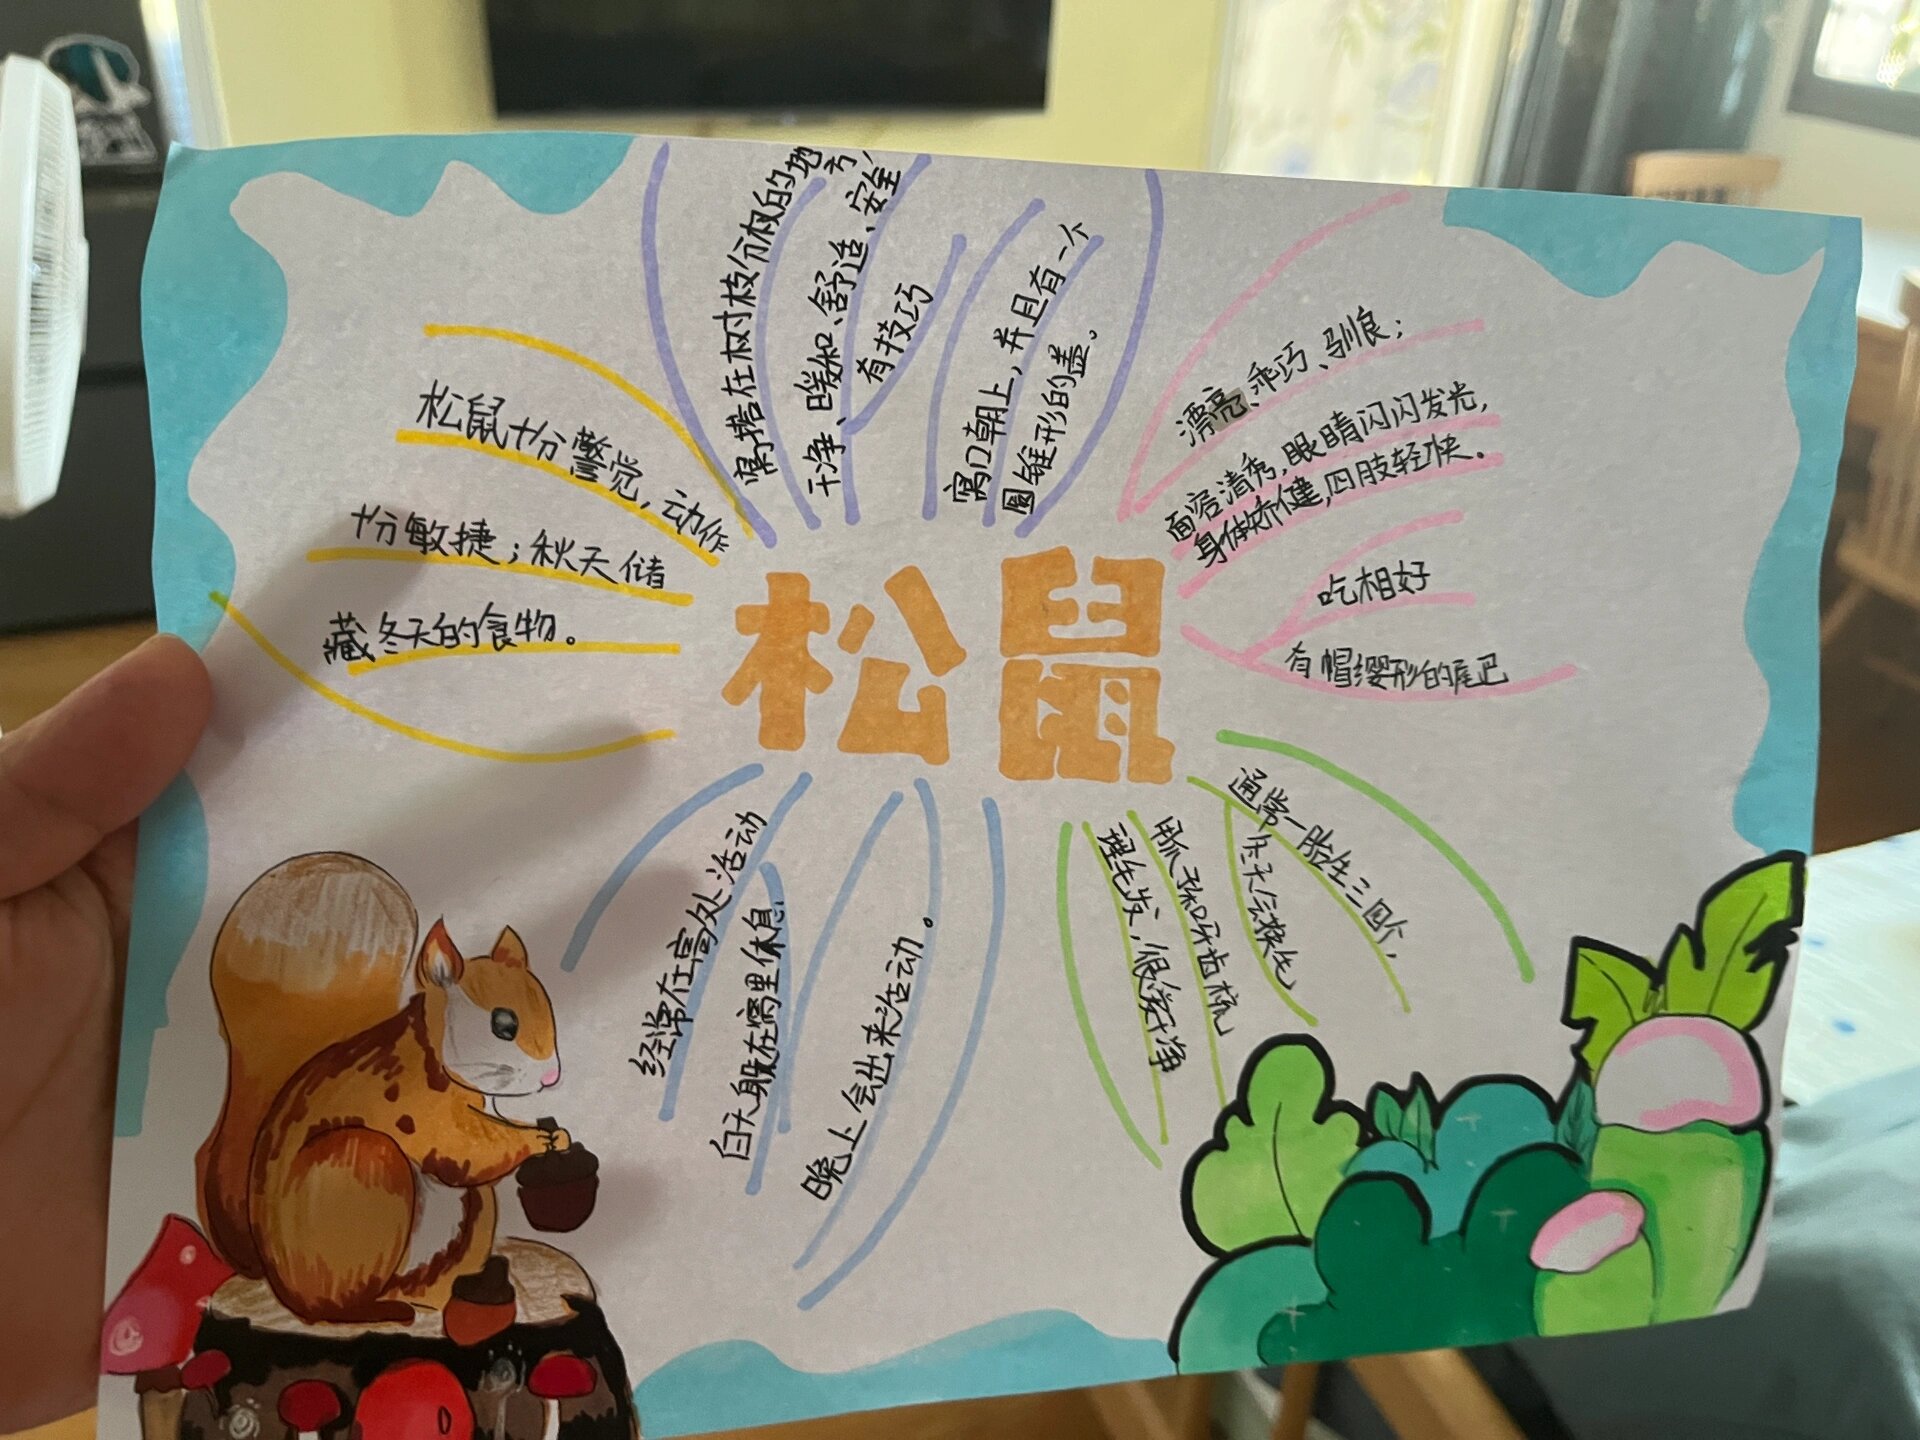 松鼠
松鼠十分警觉，动作
十分敏捷；秋天储
藏冬天的食物。
窝搭在树枝分杈的地方，
干净、暖和、舒适、安全，
有技巧
窝口朝上，并且有一个
圆锥形的盖。
漂亮、乖巧、驯良；
面容清秀，眼睛闪闪发光，
身体矫健，四肢轻快。
吃相好
有帽缨形的尾巴
通常一胎生三四个，
冬天会换毛，
用爪子和牙齿梳
理毛发，很爱干净
经常在高处活动
白天躲在窝里休息
晚上会出来活动。